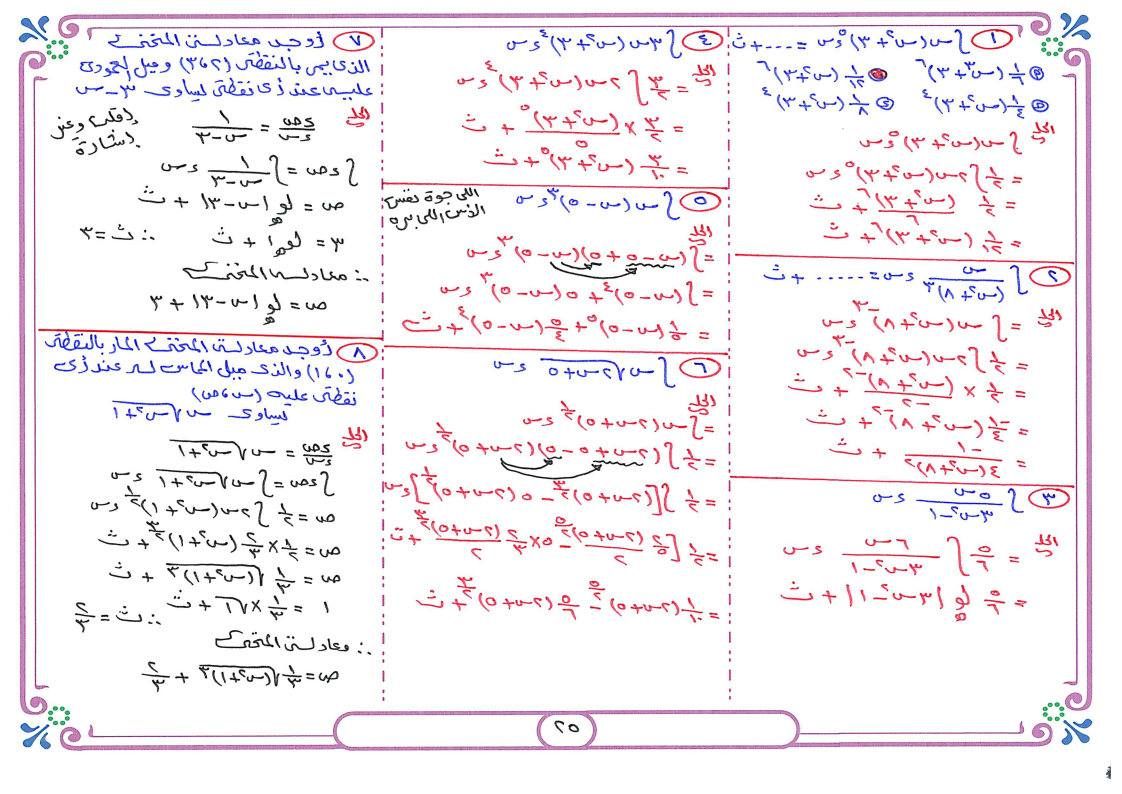 ① ∫ س (س٢ + ٣)٥ ءس = ... + ث
Ⓟ ١/٦ (س٣ + ٣)٦ ١/١٢ (س٢ + ٣)٦
١/٤ (س٢ + ٣)٤ Ⓢ ١/٨ (س٢ + ٣)٤
الحل
∫ س (س٢ + ٣)٥ ءس
= ١/٢ ∫ ٢س (س٢ + ٣)٥ ءس
= ١/٢ (س٢ + ٣)٦/٦ + ث
= ١/١٢ (س٢ + ٣)٦ + ث
② ∫ س/(س٢ + ٨)٣ ءس = ..... + ث
الحل
= ∫ س (س٢ + ٨)-٣ ءس
= ١/٢ ∫ ٢س (س٢ + ٨)-٣ ءس
= ١/٢ × (س٢ + ٨)-٢/-٢ + ث
= -١/٤ (س٢ + ٨)-٢ + ث
= -١/٤(س٢ + ٨)٢ + ث
③ ∫ ٥س/(٣س٢ - ١) ءس
الحل
= ٥/٦ ∫ ٦س/(٣س٢ - ١) ءس
= ٥/٦ لوهـ |٣س٢ - ١| + ث
④ ∫ ٣س (س٢ + ٣)٤ ءس
الحل
= ٣/٢ ∫ ٢س (س٢ + ٣)٤ ءس
= ٣/٢ × (س٢ + ٣)٥/٥ + ث
= ٣/١٠ (س٢ + ٣)٥ + ث
⑤ ∫ س (س - ٥)٣ ءس
اللى جوة نفس
الأس اللى بره
الحل
= ∫ (س - ٥ + ٥)(س - ٥)٣ ءس
= ∫ (س - ٥)٤ + ٥ (س - ٥)٣ ءس
= ١/٥ (س - ٥)٥ + ٥/٤ (س - ٥)٤ + ث
⑥ ∫ س √(٢س + ٥) ءس
الحل
= ∫ س (٢س + ٥)١/٢ ءس
= ١/٢ ∫ (٢س + ٥ - ٥)(٢س + ٥)١/٢ ءس
= ١/٢ ∫ [(٢س + ٥)٣/٢ - ٥ (٢س + ٥)١/٢] ءس
= ١/٢ [٢/٥ (٢س + ٥)٥/٢/٢ - ٥ × ٢/٣ (٢س + ٥)٣/٢/٢ + ث
= ١/١٠ (٢س + ٥)٥/٢ - ٥/٦ (٢س + ٥)٣/٢ + ث
⑦ أوجد معادلة المنحنى
الذى يمر بالنقطة (٢ ، ٣) وميل العمودى
عليه عند أى نقطة يساوى ٣ - س
الحل
ءص/ءس = ١/(س - ٣)
اقلب وغير
إشارة
∫ ءص = ∫ ١/(س - ٣) ءس
ص = لوهـ |س - ٣| + ث
٣ = لوهـ ١ + ث ∴ ث = ٣
∴ معادلة المنحنى
ص = لوهـ |س - ٣| + ٣
⑧ أوجد معادلة المنحنى المار بالنقطة
(٠ ، ١) والذى ميل المماس له عند أى
نقطة عليه (س ، ص)
يساوى س √(س٢ + ١)
الحل
ءص/ءس = س √(س٢ + ١)
∫ ءص = ∫ س √(س٢ + ١) ءس
ص = ١/٢ ∫ ٢س (س٢ + ١)١/٢ ءس
ص = ١/٢ × ٢/٣ (س٢ + ١)٣/٢ + ث
ص = ١/٣ √(س٢ + ١)٣ + ث
١ = ١/٣ × √١ + ث ∴ ث = ٢/٣
∴ معادلة المنحنى
ص = ١/٣ √(س٢ + ١)٣ + ٢/٣
٢٥